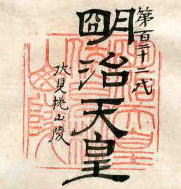 第百二十二代
明治天皇
伏見桃山陵